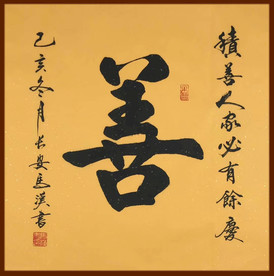 積善人家必有餘慶
善
乙亥冬月長安馬漢書